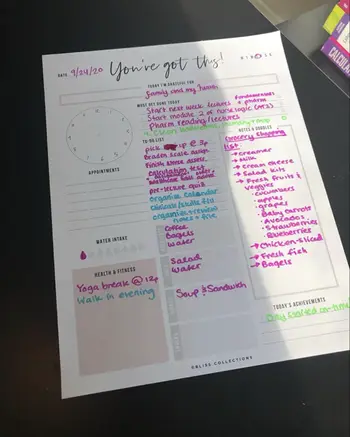 You've got this!
DATE 9/24/20
TODAY I'M GRATEFUL FOR
Family and my
MUST GET DONE TODAY
Start next week lectures fundamentals + pharm
Start module 2 of nurse logic (ATI)
Pharm reading/lectures
TO DO LIST
pick up @ 3p
braden scale assign.
Finish stress assess.
calculation test
organize calendar
clinicals/skills/flu
organize + review
notes + five
APPOINTMENTS
NOTES & DOODLES
Grocery shopping
list:
→ creamer
→ Milk
→ cream cheese
→ Salad kits
→ Fresh fruits &
veggies
· cucumbers
· apples
· grapes
· Baby carrots
· Avocados
· Strawberries
· Blueberries
→ Chicken-sliced
→ Fresh fish
→ Bagels
WATER INTAKE
Coffee
Bagels
water
Salad
Water
Soup & Sandwich
HEALTH & FITNESS
Yoga break @ 12p
Walk in evening
TODAY'S ACHIEVEMENTS
©BLISS COLLECTIONS
CALCULA